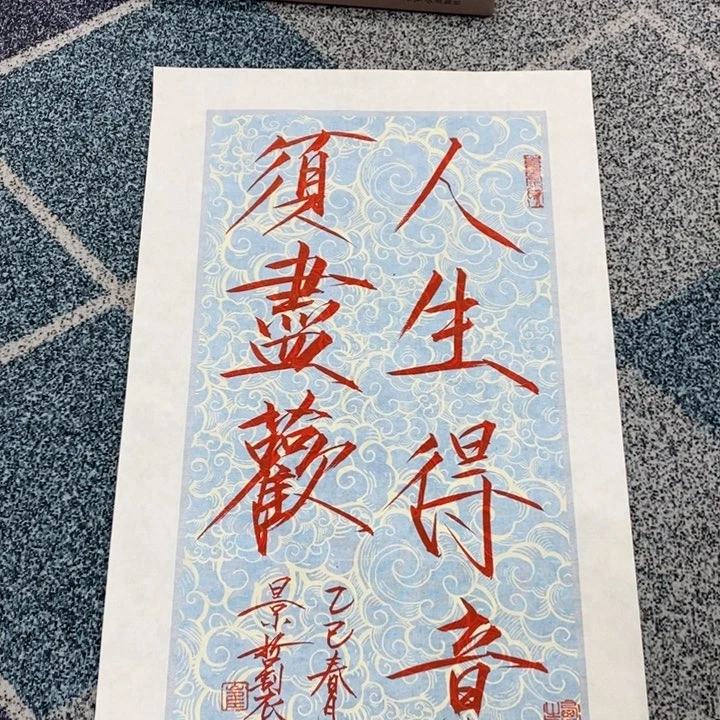 人生得意
須盡歡
乙巳春
景